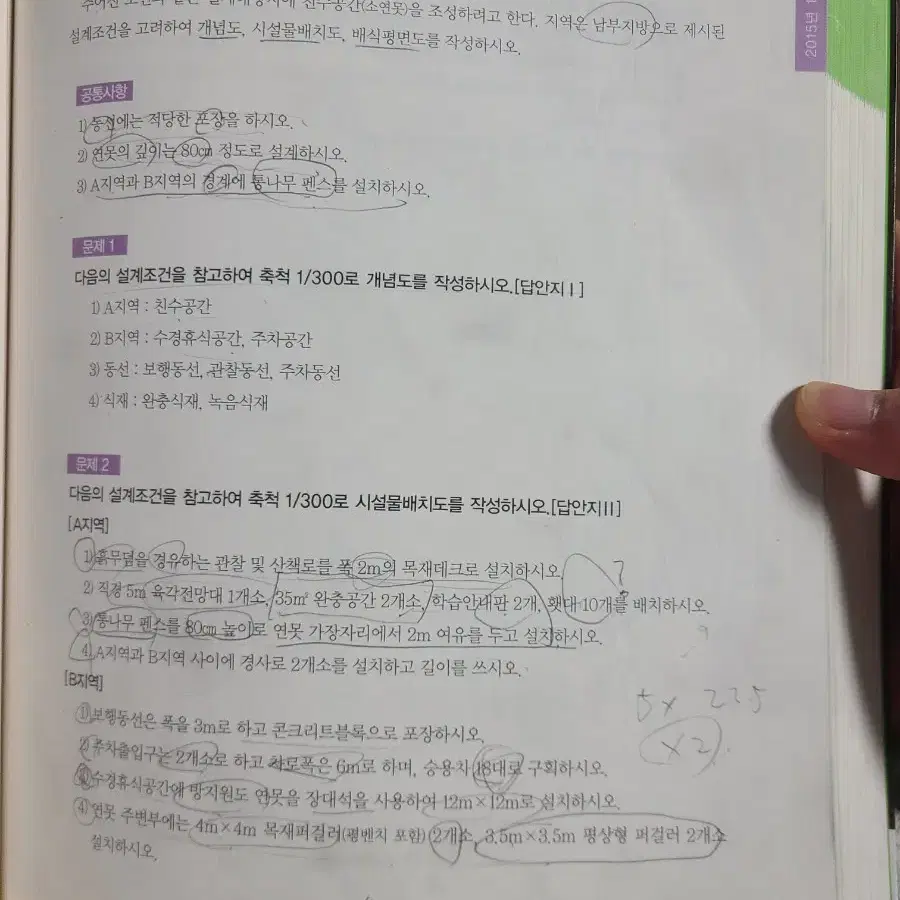 주어진 조건과 같은 설계대상지에 친수공간(소연못)을 조성하려고 한다. 지역은 남부지방으로 제시된
설계조건을 고려하여 개념도, 시설물배치도, 배식평면도를 작성하시오.
2015년
공통사항
1) 동선에는 적당한 포장을 하시오.
2) 연못의 깊이는 80cm 정도로 설계하시오.
3) A지역과 B지역의 경계에 통나무 펜스를 설치하시오.
문제 1
다음의 설계조건을 참고하여 축척 1/300로 개념도를 작성하시오.[답안지 I ]
1) A지역 : 친수공간
2) B지역 : 수경휴식공간, 주차공간
3) 동선 : 보행동선, 관찰동선, 주차동선
4) 식재 : 완충식재, 녹음식재
문제 2
다음의 설계조건을 참고하여 축척 1/300로 시설물배치도를 작성하시오.[답안지 II ]
[A지역]
1) 흙무덤을 경유하는 관찰 및 산책로를 폭 2m의 목재데크로 설치하시오.
2) 직경 5m 육각전망대 1개소, 35m² 완충공간 2개소, 학습안내판 2개, 횃대 10개를 배치하시오.
3) 통나무 펜스를 80cm 높이로 연못 가장자리에서 2m 여유를 두고 설치하시오.
4) A지역과 B지역 사이에 경사로 2개소를 설치하고 길이를 쓰시오.
[B지역]
1) 보행동선은 폭을 3m로 하고 콘크리트블록으로 포장하시오.
2) 주차출입구는 2개소로 하고 차로폭은 6m로 하며, 승용차 18대로 구획하시오.
3) 수경휴식공간에 방지원도 연못을 장대석을 사용하여 12m×12m로 설치하시오.
4) 연못 주변부에는 4m×4m 목재퍼걸러(평벤치 포함) 2개소, 3.5m×3.5m 평상형 퍼걸러 2개소
설치하시오.
5 x 225
x 2